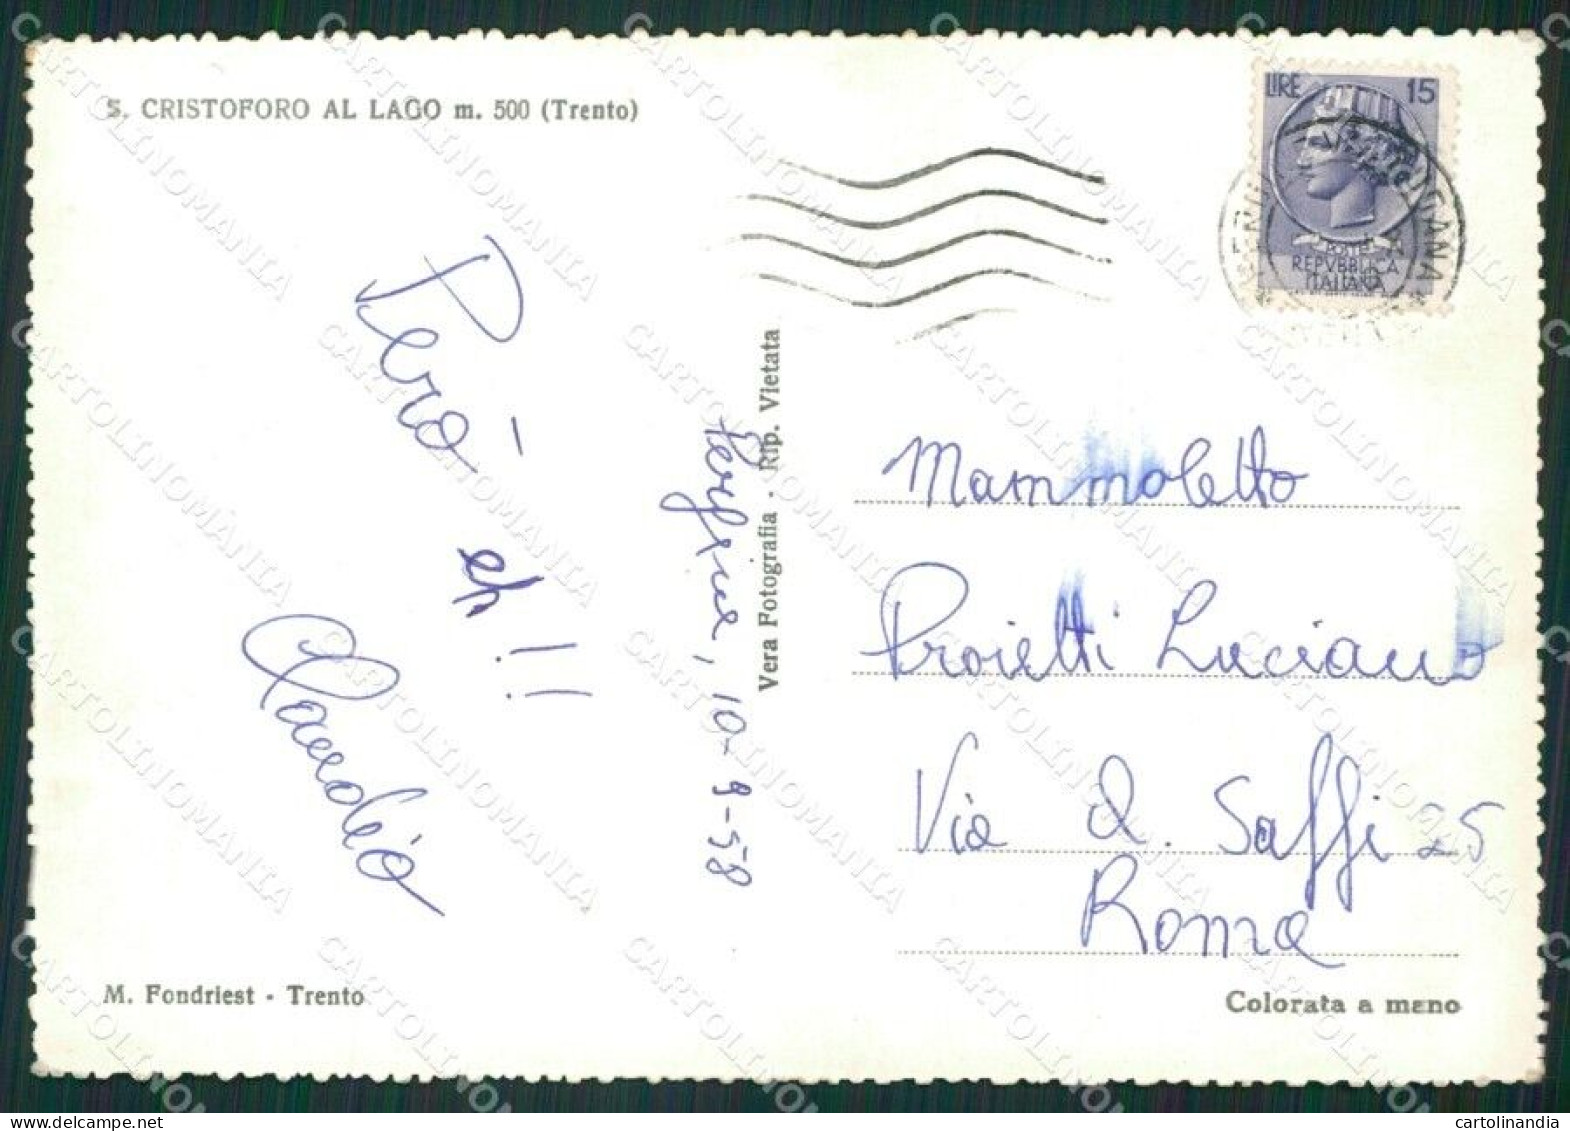 S. CRISTOFORO AL LAGO m. 500 (Trento)
LIRE 15
POSTE
REPVBBLICA
ITALIANA
Però
eh!!
Claudio
Pergine, 10-9-58
Vera Fotografia - Rip. Vietata
Mammoletto
Proietti Luciano
Via A. Saffi 25
Roma
M. Fondriest - Trento
Colorata a mano
CARTOLINOMANIA
cartolinandia